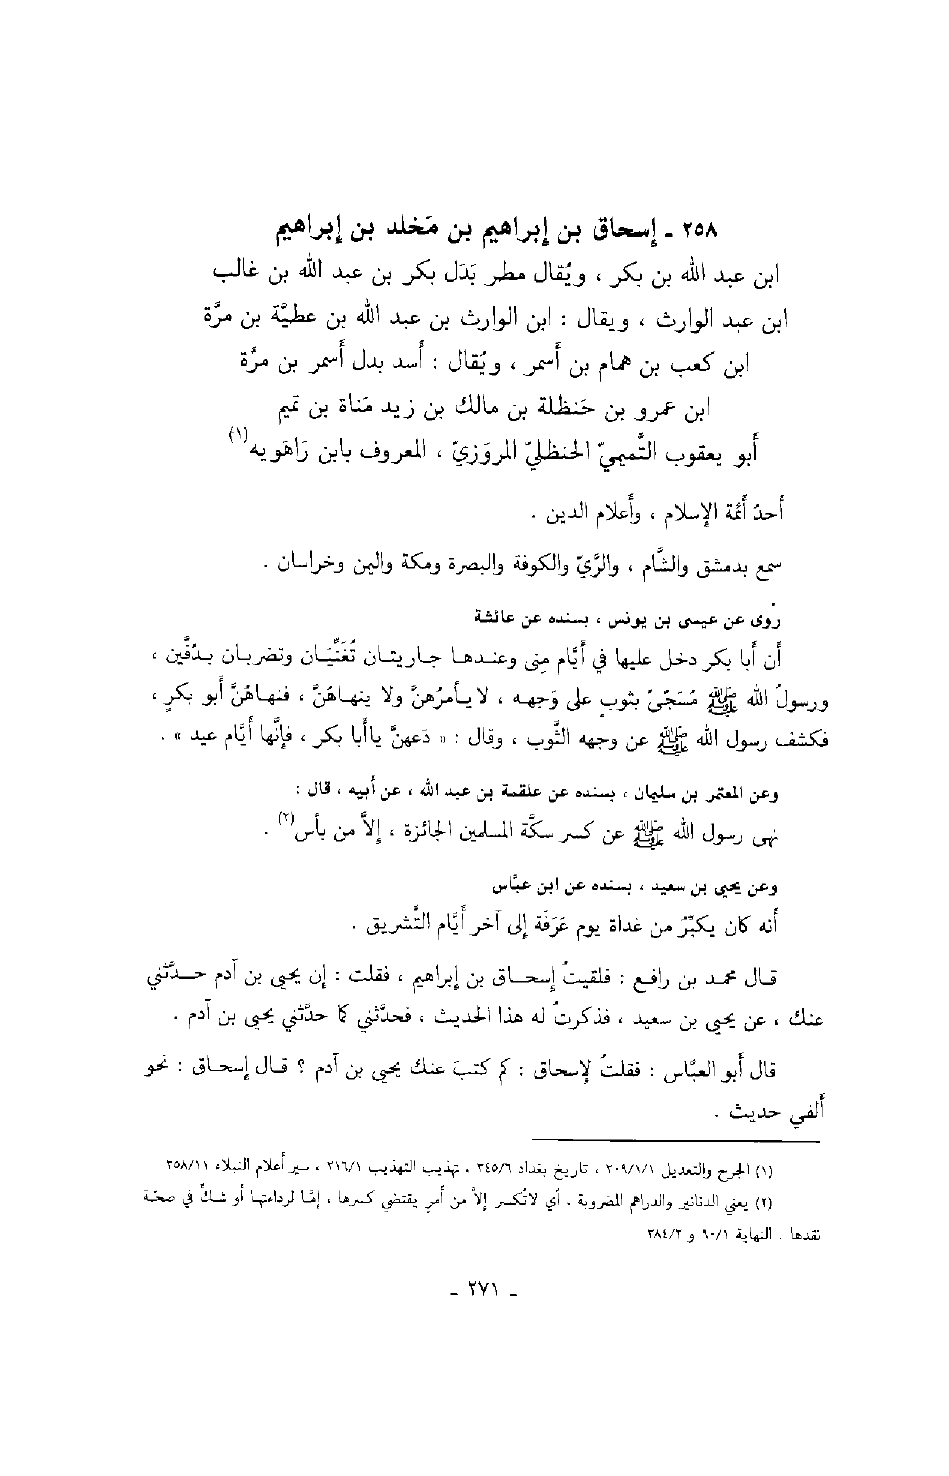 ٢٥٨ - إسحاق بن إبراهيم بن مَخلد بن إبراهيم
ابن عبد الله بن بكر ، ويُقال مطر بَدَل بكر بن عبد الله بن غالب
ابن عبد الوارث ، ويقال : ابن الوارث بن عبد الله بن عطيَّة بن مرَّة
ابن كعب بن همام بن أَسمر ، ويُقال : أَسد بدل أَسمر بن مرَّة
ابن عمرو بن حَنظلة بن مالك بن زيد مَناة بن تميم
أَبو يعقوب التَّميميّ الحنظليّ المروَزيّ ، المعروف بابن رَاهَويه(١)
أَحدُ أَئمّة الإسلام ، وأَعلام الدين .
سمع بدمشق والشَّام ، والرَّيّ والكوفة والبصرة ومكة واليمن وخراسان .
رَوى عن عيسى بن يونس ، بسنده عن عائشة
أَن أَبا بكر دخل عليها في أَيَّام مِنى وعندها جاريتان تُغَنِّيَان وتضربان بدُفَّين ،
ورسولُ الله ﷺ مُسَجّىً بثوبٍ على وَجهه ، لا يأمرُهنَّ ولا ينهاهَنَّ ، فنهاهُنَّ أَبو بكرٍ ،
فكشف رسول الله ﷺ عن وجهه الثَّوب ، وقال : « دَعهنَّ ياأَبا بكر ، فإنَّها أَيَّام عيد » .
وعن المعتمر بن سليمان ، بسنده عن علقمة بن عبد الله ، عن أَبيه ، قال :
نهى رسول الله ﷺ عن كسر سكَّة المسلمين الجائزة ، إلاَّ من بأس(٢) .
وعن يحيى بن سعيد ، بسنده عن ابن عبَّاس
أَنه كان يكبِّرُ من غداة يوم عَرَفَة إلى آخر أَيَّام التَّشريق .
قال محمد بن رافع : فلقيتُ إسحاق بن إبراهيم ، فقلت : إن يحيى بن آدم حدَّثني
عنك ، عن يحيى بن سعيد ، فذكرتُ له هذا الحديث ، فحدَّثني كما حدَّثني يحيى بن آدم .
قال أَبو العبَّاس : فقلتُ لإسحاق : كم كتبَ عنك يحيى بن آدم ؟ قال إسحاق : نحو
أَلفي حديث .
(١) الجرح والتعديل ٢٠٩/١/١ ، تاريخ بغداد ٣٤٥/٦ ، تهذيب التهذيب ٢١٦/١ ، سير أعلام النبلاء ٣٥٨/١١
(٢) يعني الدنانير والدراهم المضروبة . أي لاتُكسر إلاَّ من أمرٍ يقتضي كسرها ، إمَّا لرداءتها أو شكٍّ في صحّة
نقدها . النهاية ٦٠/١ و ٣٨٤/٢
- ٢٧١ -